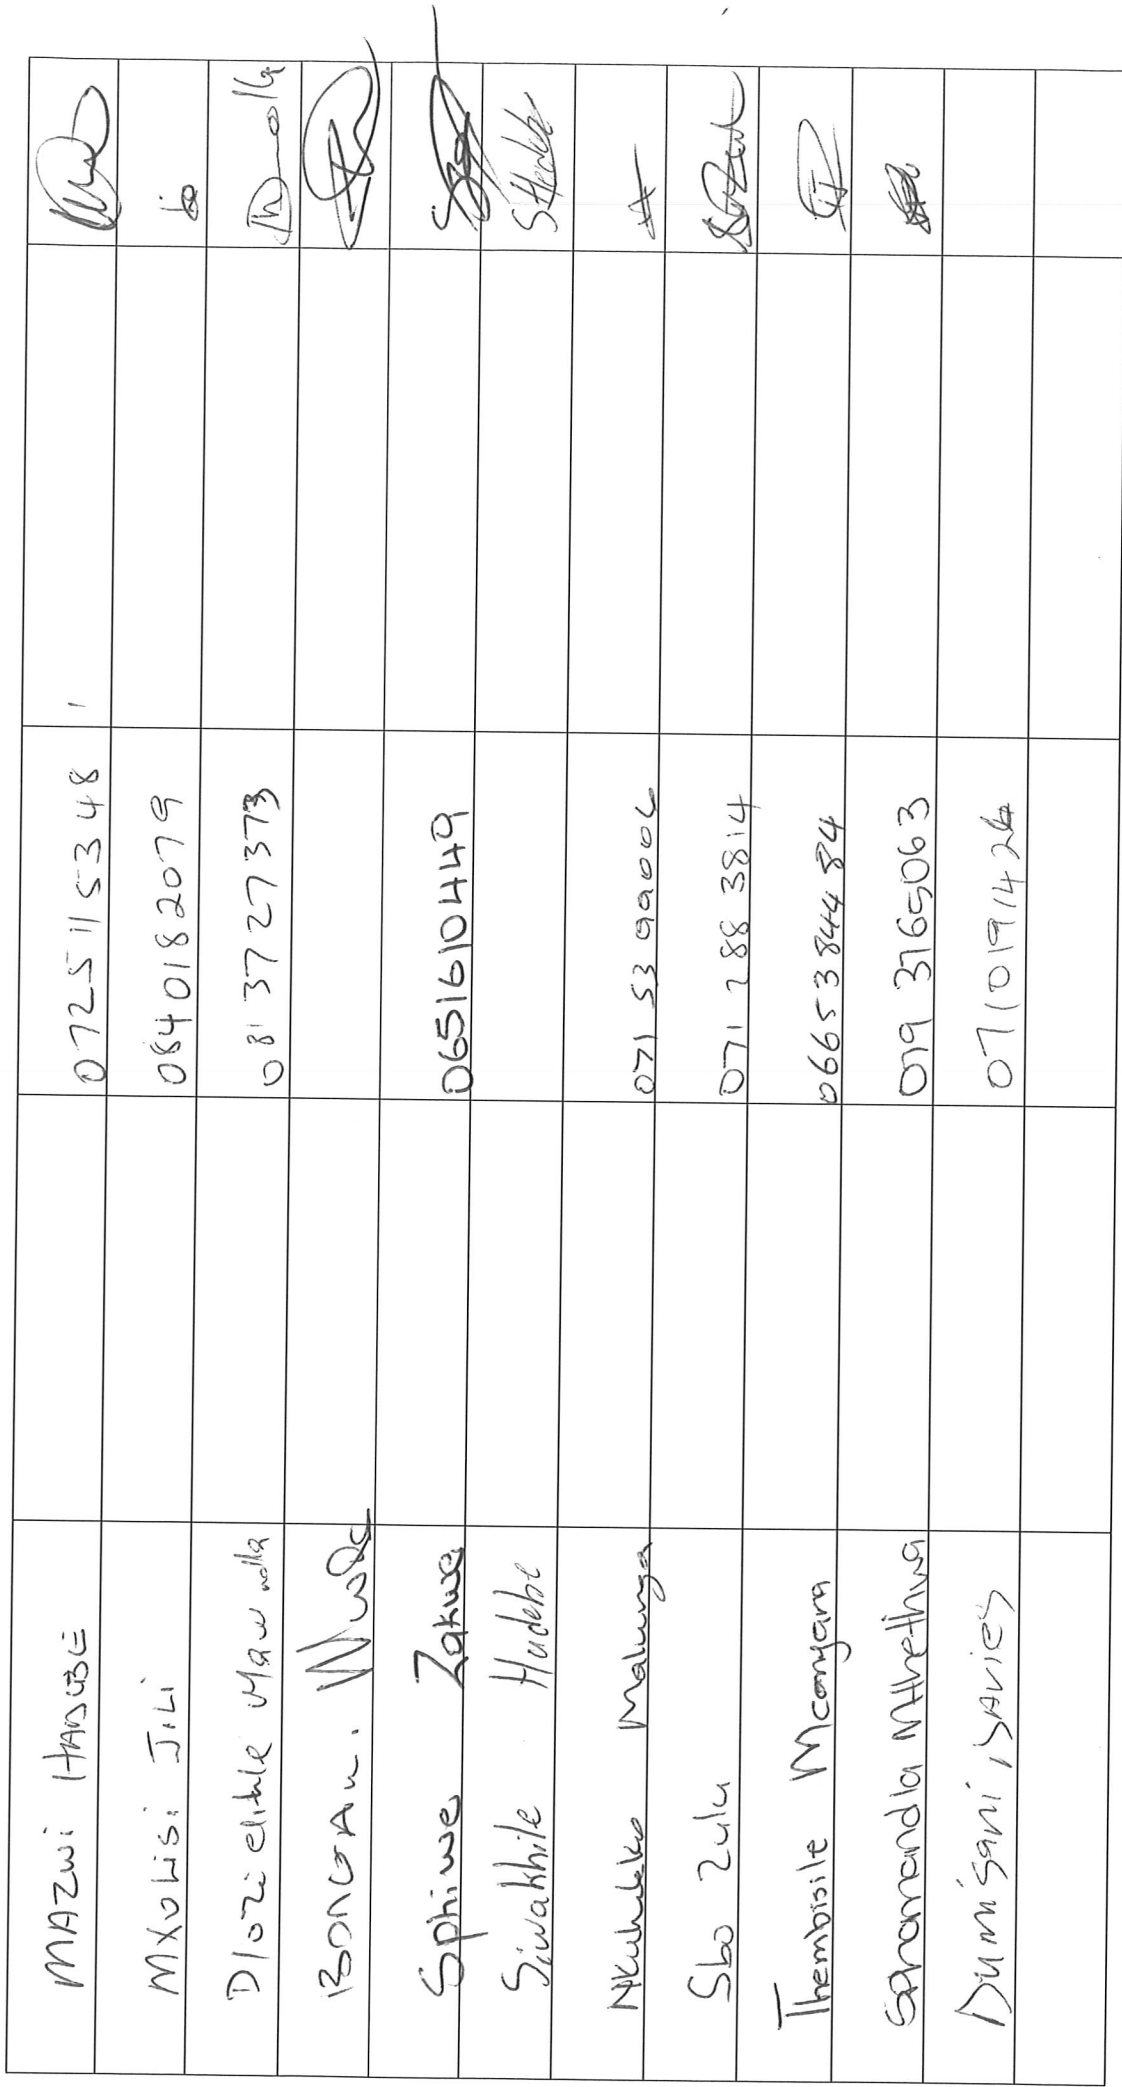 MAZWI HADEBE 0725115348
MXOLISI JILI 0840182079
Dlozi elihle 0813727373
BONGANI.
Sphiwe Zakwe 0651610449
Siwakhile Hadebe SHadebe
Nkululeko Malunga 071 53 99006
Sbo Zulu 071 288 3814
Thembisile Mcanyana 0665384484
Sphamandla Mthethwa 079 3765063
Dumisani Davies